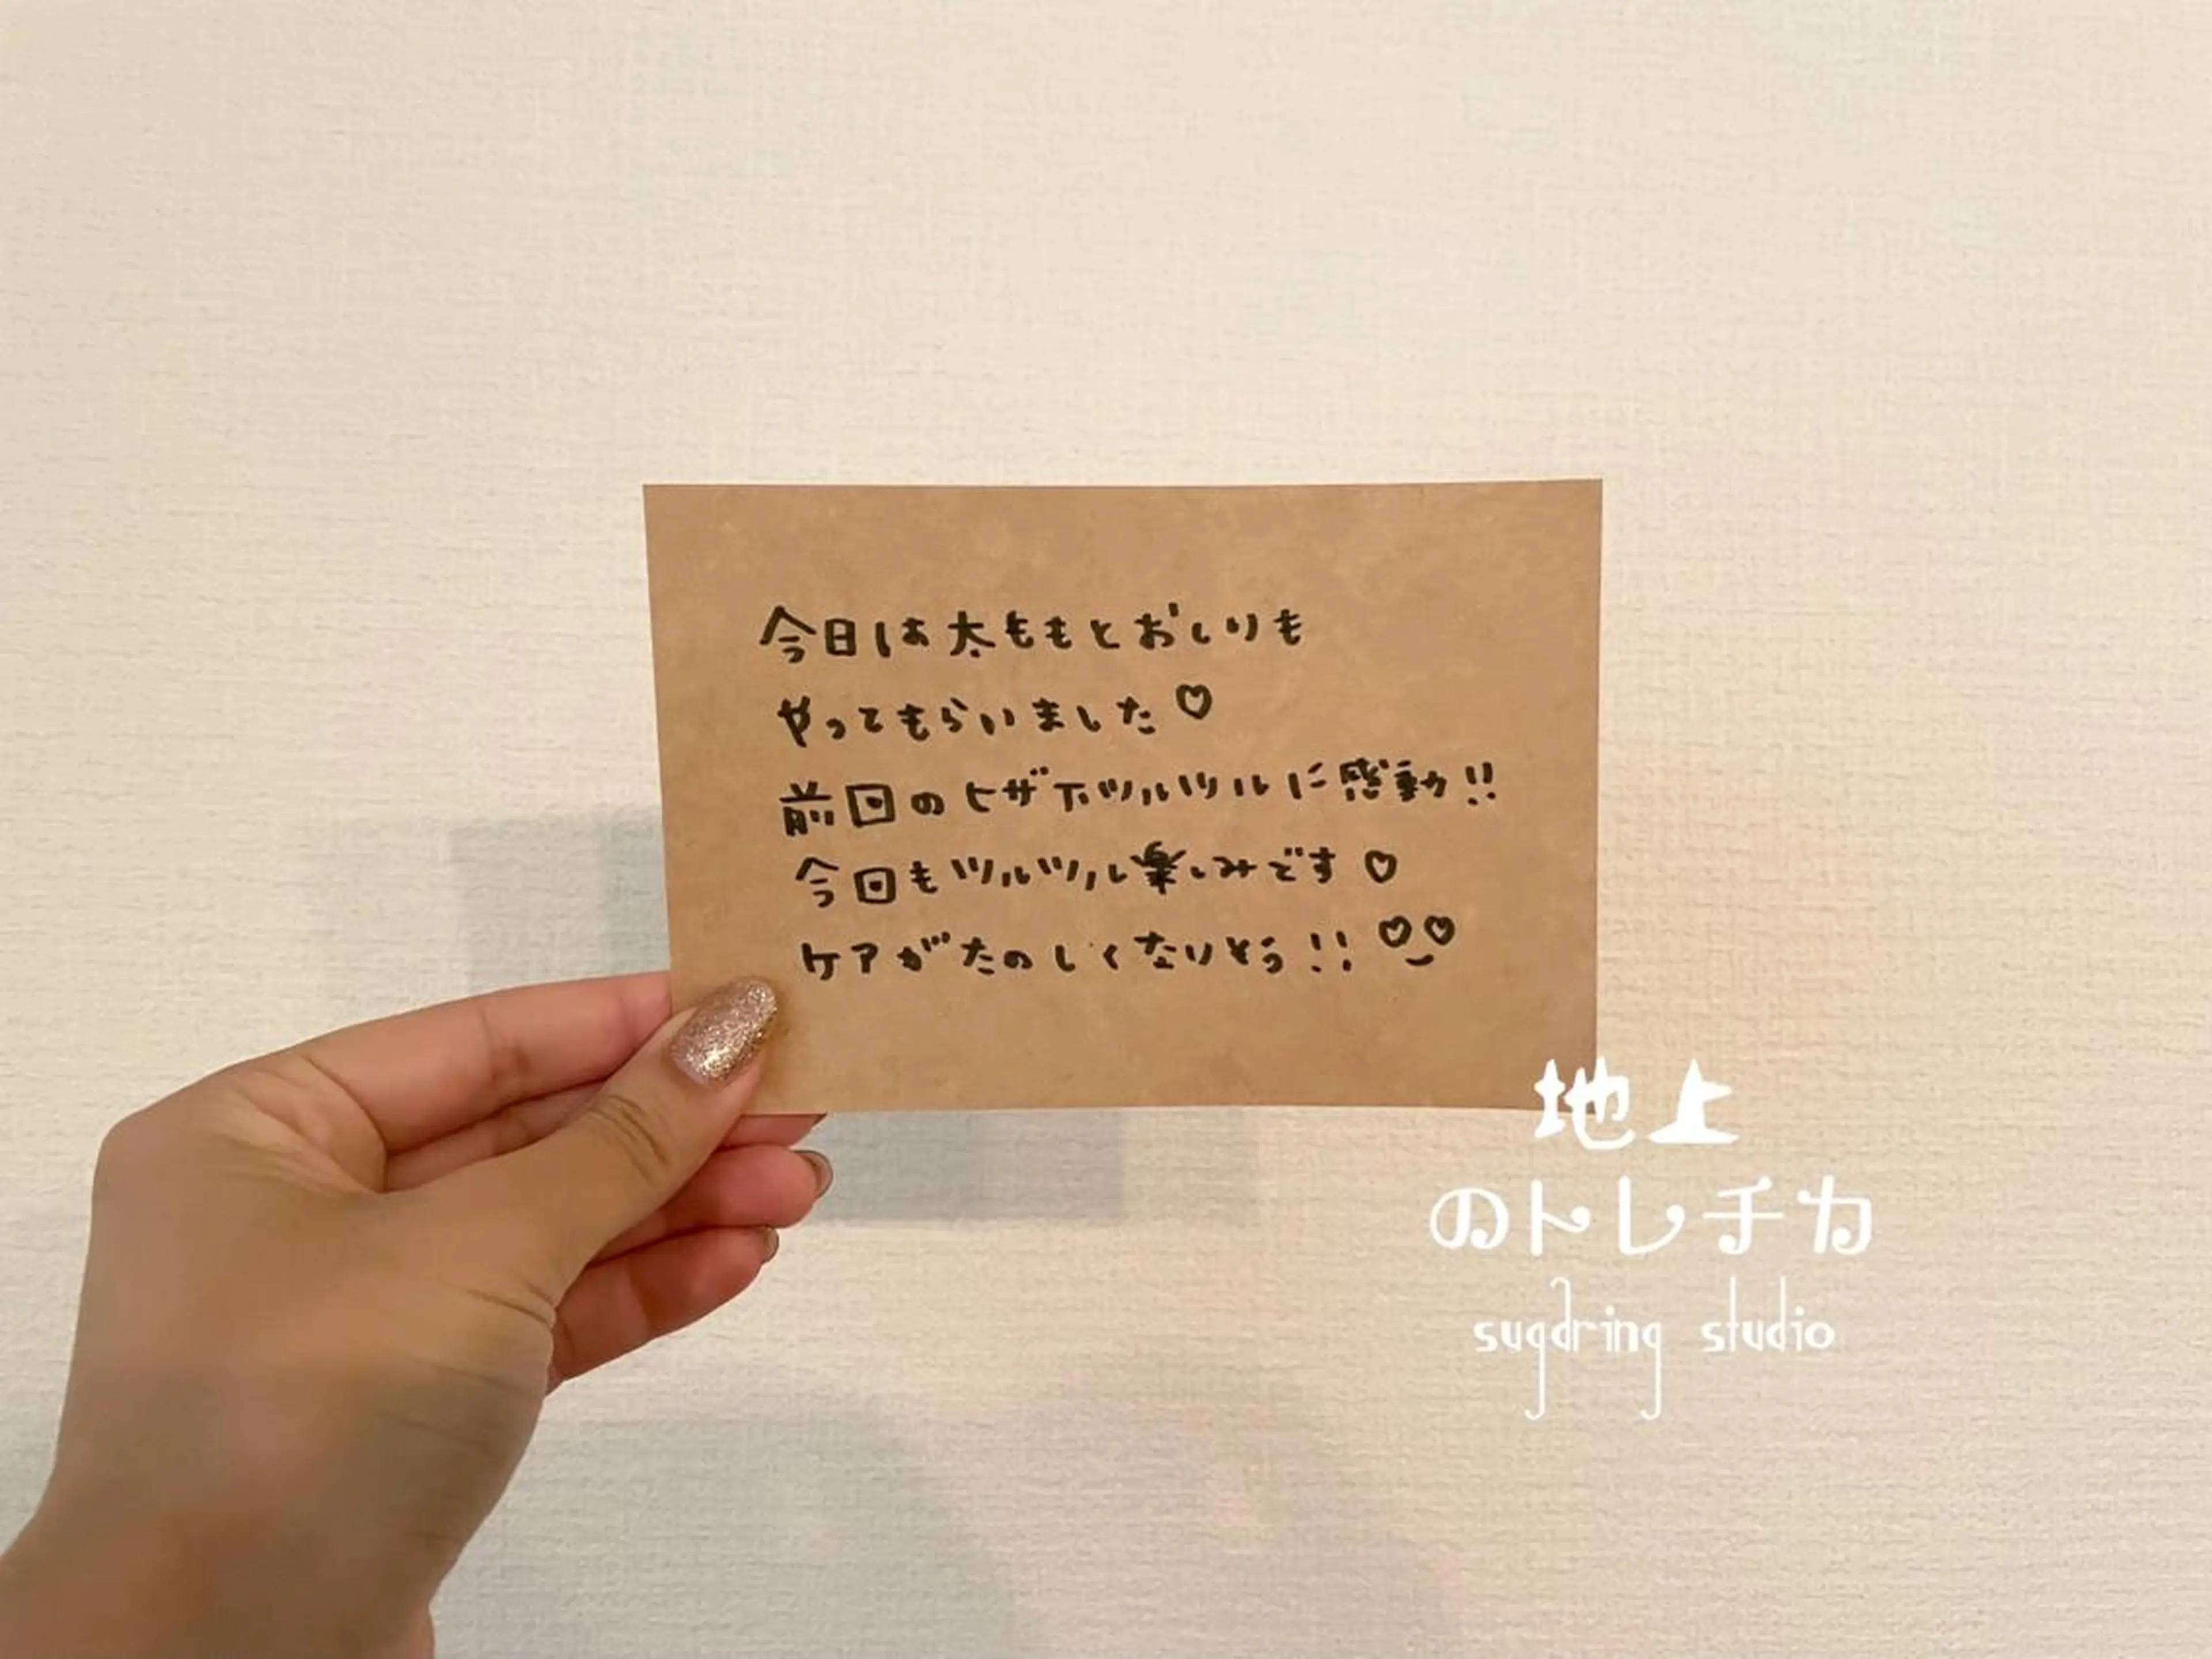 今日は太ももとおしりも
やってもらいました♡
前回のヒザ下ツルツルに感動!!
今回もツルツル楽しみです♡
ケアがたのしくなりそう!!
地上
のトレチカ
sugdring studio